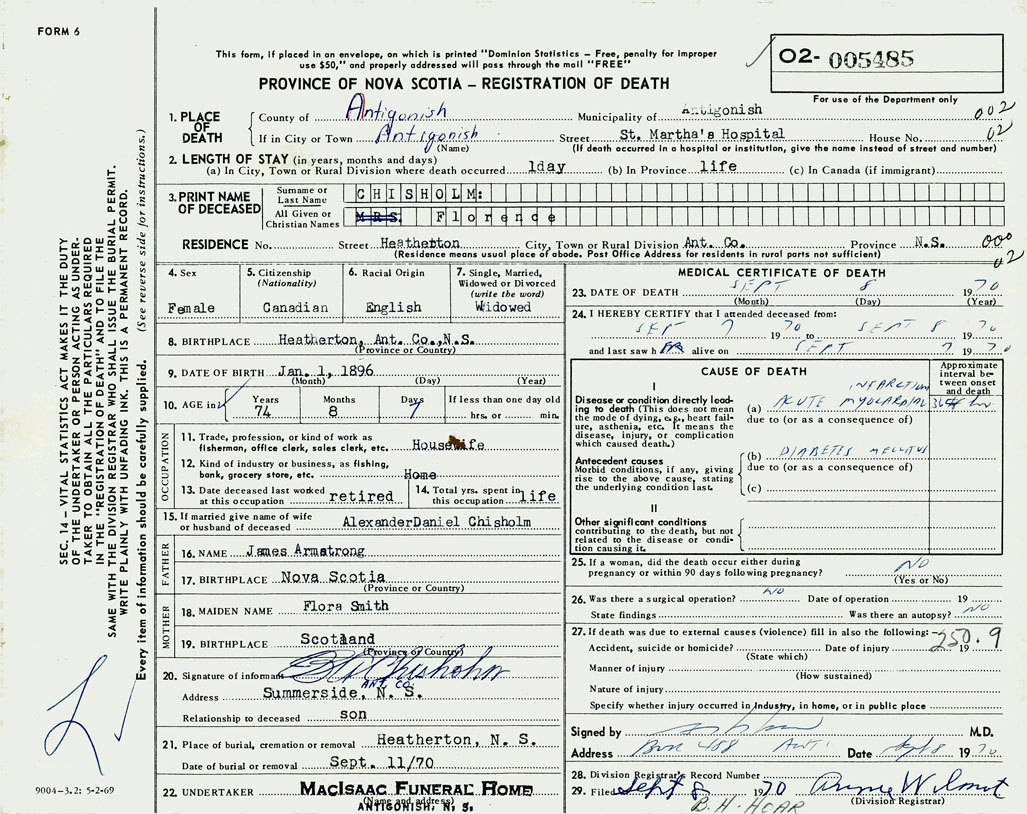 FORM 6
This form, if placed in an envelope, on which is printed "Dominion Statistics – Free, penalty for improper
use $50," and properly addressed will pass through the mail "FREE"
O2- 005485
For use of the Department only
PROVINCE OF NOVA SCOTIA – REGISTRATION OF DEATH
1. PLACE OF DEATH
County of Antigonish Municipality of Antigonish 002
If in City or Town Antigonish Street St. Martha's Hospital House No. 02
(Name) (If death occurred in a hospital or institution, give the name instead of street and number)
2. LENGTH OF STAY (in years, months and days)
(a) In City, Town or Rural Division where death occurred 1day (b) In Province life (c) In Canada (if immigrant)
3. PRINT NAME OF DECEASED
Surname or Last Name CHISHOLM:
All Given or Christian Names MRS. Florence
RESIDENCE No. Street Heatherton City, Town or Rural Division Ant. Co. Province N.S. 000
(Residence means usual place of abode. Post Office Address for residents in rural parts not sufficient) 02
4. Sex
Female
5. Citizenship
(Nationality)
Canadian
6. Racial Origin
English
7. Single, Married,
Widowed or Divorced
(write the word)
Widowed
8. BIRTHPLACE Heatherton, Ant. Co.,N.S.
(Province or Country)
9. DATE OF BIRTH Jan. 1, 1896
(Month) (Day) (Year)
10. AGE in
Years Months Days If less than one day old
74 8 7 hrs. or min.
OCCUPATION
11. Trade, profession, or kind of work as
fisherman, office clerk, sales clerk, etc. Housewife
12. Kind of industry or business, as fishing,
bank, grocery store, etc. Home
13. Date deceased last worked
at this occupation retired
14. Total yrs. spent in
this occupation life
15. If married give name of wife
or husband of deceased AlexanderDaniel Chisholm
FATHER
16. NAME James Armstrong
17. BIRTHPLACE Nova Scotia
(Province or Country)
MOTHER
18. MAIDEN NAME Flora Smith
19. BIRTHPLACE Scotland
(Province or Country)
20. Signature of informant Chisholm
ANT. CO.
Address Summerside, N. S.
Relationship to deceased son
21. Place of burial, cremation or removal Heatherton, N. S.
Date of burial or removal Sept. 11/70
22. UNDERTAKER MacIsaac Funeral Home
(Name and address)
ANTIGONISH, N. S.
MEDICAL CERTIFICATE OF DEATH
23. DATE OF DEATH SEPT 8 1970
(Month) (Day) (Year)
24. I HEREBY CERTIFY that I attended deceased from:
SEPT 7 1970 to SEPT 8 1970
and last saw h ER alive on SEPT 7 1970
CAUSE OF DEATH
Approximate
interval be-
tween onset
and death
I
Disease or condition directly lead-
ing to death (This does not mean
the mode of dying, e.g., heart fail-
ure, asthenia, etc. It means the
disease, injury, or complication
which caused death.)
INFARCTION
(a) ACUTE MYOCARDIAL
due to (or as a consequence of)
Antecedent causes
Morbid conditions, if any, giving
rise to the above cause, stating
the underlying condition last.
(b) DIABETES MELLITUS
due to (or as a consequence of)
(c)
II
Other significant conditions
contributing to the death, but not
related to the disease or condi-
tion causing it.
25. If a woman, did the death occur either during
pregnancy or within 90 days following pregnancy? NO
(Yes or No)
26. Was there a surgical operation? NO Date of operation 19
State findings Was there an autopsy? NO
27. If death was due to external causes (violence) fill in also the following: 250.9
Accident, suicide or homicide? Date of injury 19
(State which)
Manner of injury
(How sustained)
Nature of injury
Specify whether injury occurred in industry, in home, or in public place
Signed by M.D.
Address Box 488 ANT. Date Sept 8 1970
28. Division Registrar's Record Number
29. Filed Sept 8 1970 Annie Wilmot
(Division Registrar)
B.H. HOAR
SEC. 14 – VITAL STATISTICS ACT MAKES IT THE DUTY
OF THE UNDERTAKER OR PERSON ACTING AS UNDER-
TAKER TO OBTAIN ALL THE PARTICULARS REQUIRED
IN THE "REGISTRATION OF DEATH" AND TO FILE THE
SAME WITH THE DIVISION REGISTRAR WHO SHALL ISSUE THE BURIAL PERMIT.
WRITE PLAINLY WITH UNFADING INK. THIS IS A PERMANENT RECORD.
Every item of information should be carefully supplied. (See reverse side for instructions.)
9004-3.2: 5-2-69